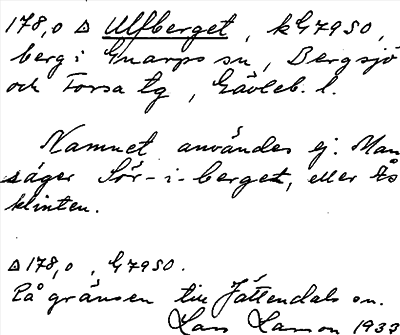 178,0 △ Ulfberget, kG7950,
berg i Gnarps sn, Bergsjö
och Forsa tg, Gävleb. l.
Namnet användes ej. Man
säger Sör-i-berget, eller Ås
klinten.
△ 178,0, G7950.
På gränsen till Jättendals sn.
Lars Larson 1933